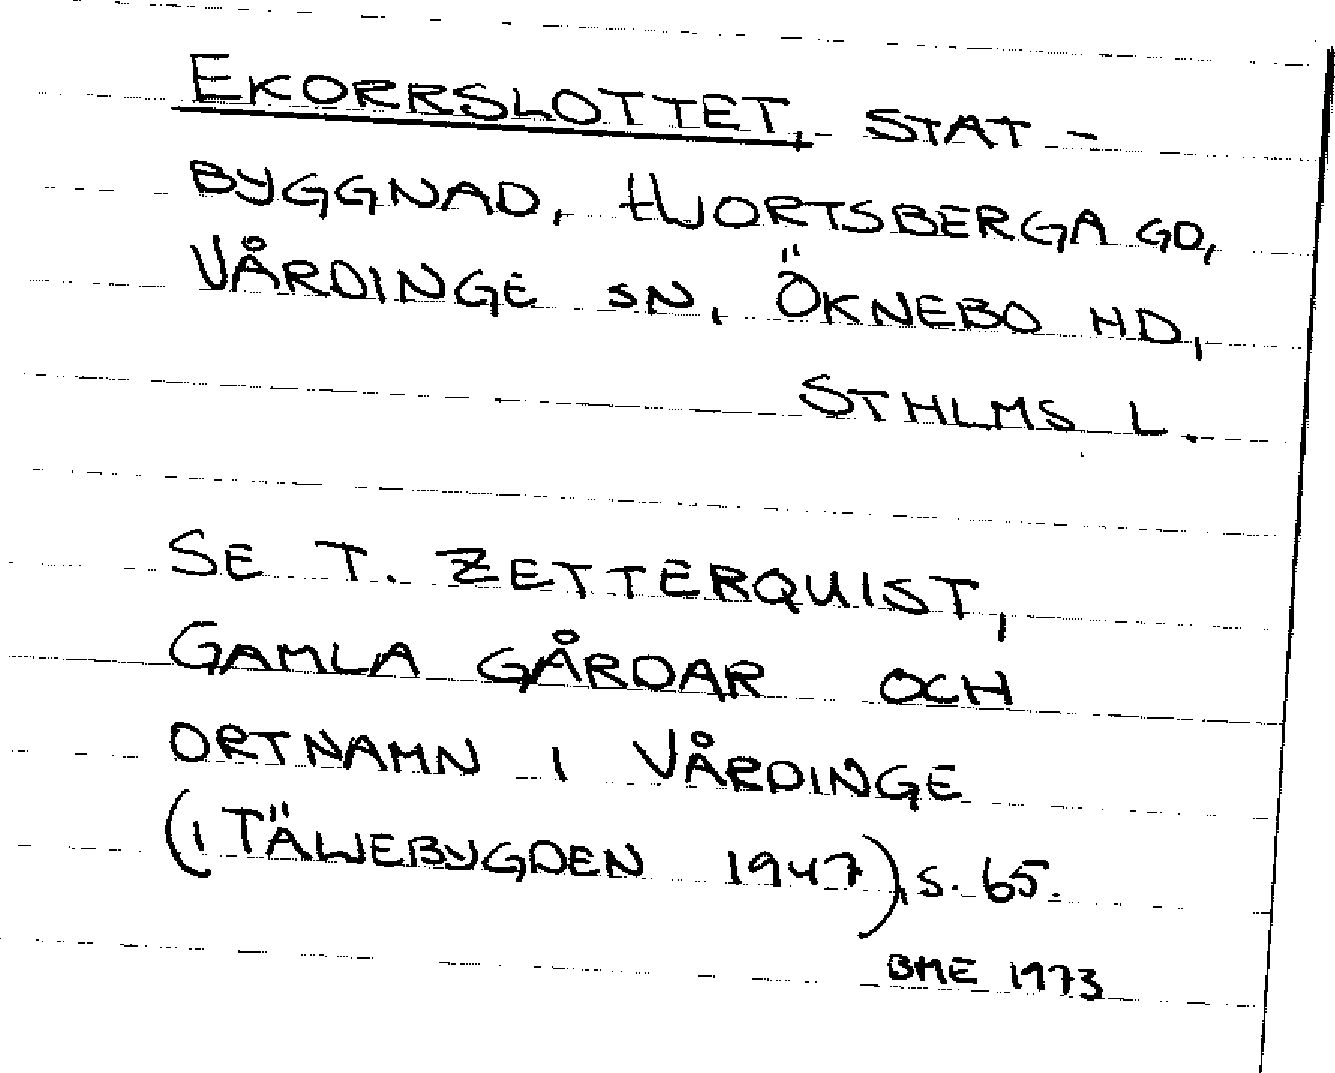 EKORRSLOTTET, STAT-
BYGGNAD, HJORTSBERGA GD,
VÅRDINGE SN, ÖKNEBO HD,
STHLMS L.
SE T. ZETTERQUIST,
GAMLA GÅRDAR OCH
ORTNAMN I VÅRDINGE
(I TÄLJEBYGDEN 1947), S. 65.
BME 1973